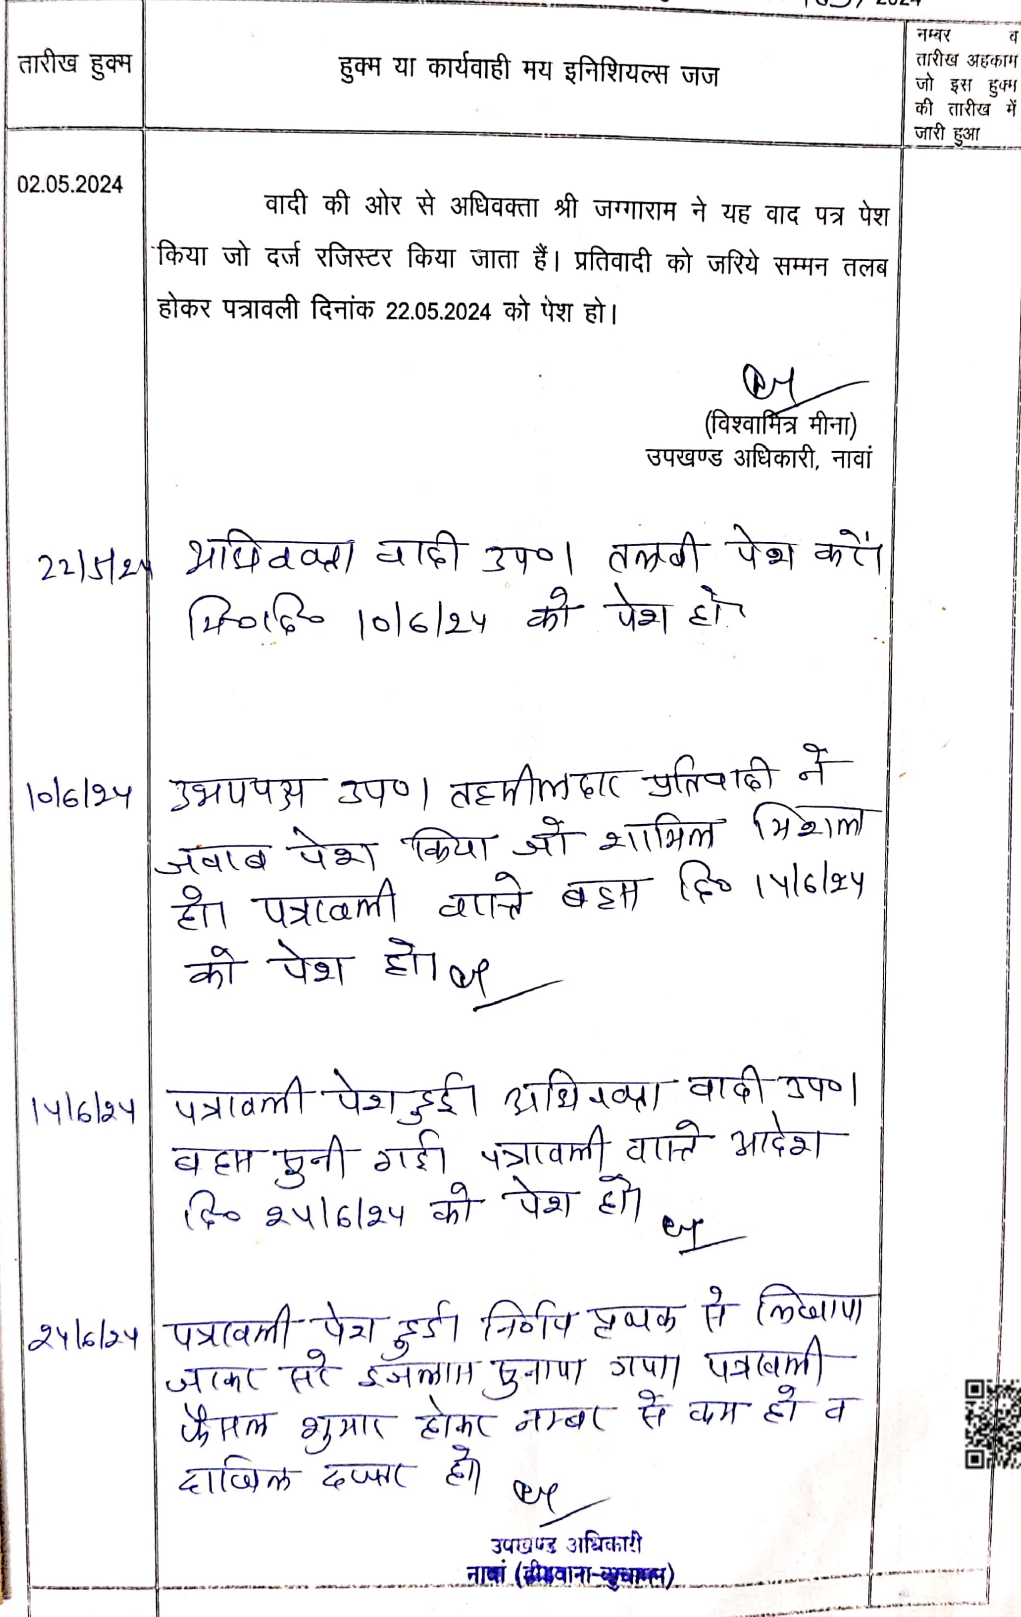 2024
तारीख हुक्म
हुक्म या कार्यवाही मय इनिशियल्स जज
नम्बर व
तारीख अहकाम
जो इस हुक्म
की तारीख में
जारी हुआ
02.05.2024
वादी की ओर से अधिवक्ता श्री जग्गाराम ने यह वाद पत्र पेश
किया जो दर्ज रजिस्टर किया जाता हैं। प्रतिवादी को जरिये सम्मन तलब
होकर पत्रावली दिनांक 22.05.2024 को पेश हो।
(विश्वामित्र मीना)
उपखण्ड अधिकारी, नावां
22/5/24 अधिवक्ता वादी उप०। तलबी पेश करें।
दि० 10/6/24 को पेश हो
10/6/24 उभयपक्ष उप०। तहसीलदार प्रतिवादी ने
जवाब पेश किया जो शामिल मिशल
हो। पत्रावली वास्ते बहस दि० 14/6/24
को पेश हो।
14/6/24 पत्रावली पेश हुई। अधिवक्ता वादी उप०।
बहस सुनी गई। पत्रावली वास्ते आदेश
दि० 24/6/24 को पेश हो।
24/6/24 पत्रावली पेश हुई। निर्णय पृथक से लिखाया
जाकर सरे इजलास सुनाया गया। पत्रावली
फैसल शुमार होकर नम्बर से कम हो व
दाखिल दफ्तर हो।
उपखण्ड अधिकारी
नावां (डीडवाना-कुचामन)